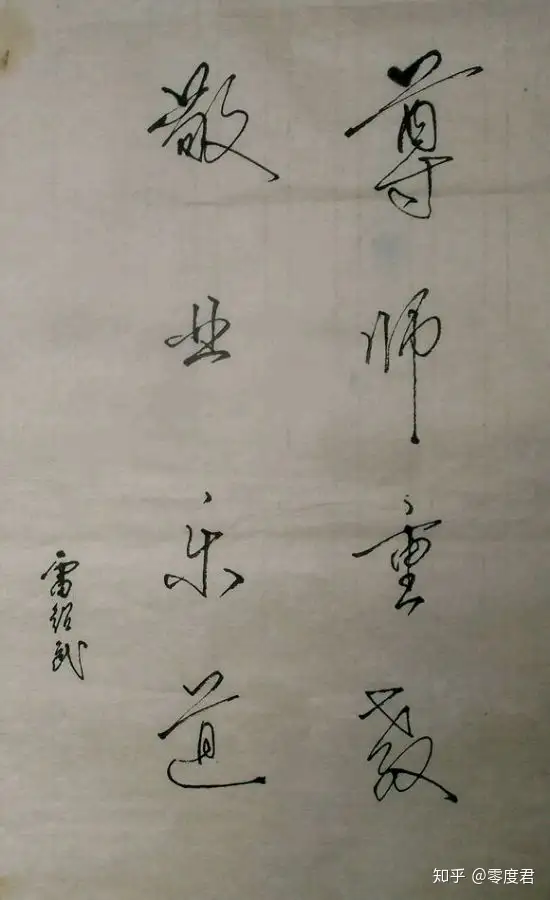 尊师重教
敬业乐道
雷绍武
知乎 @零度君